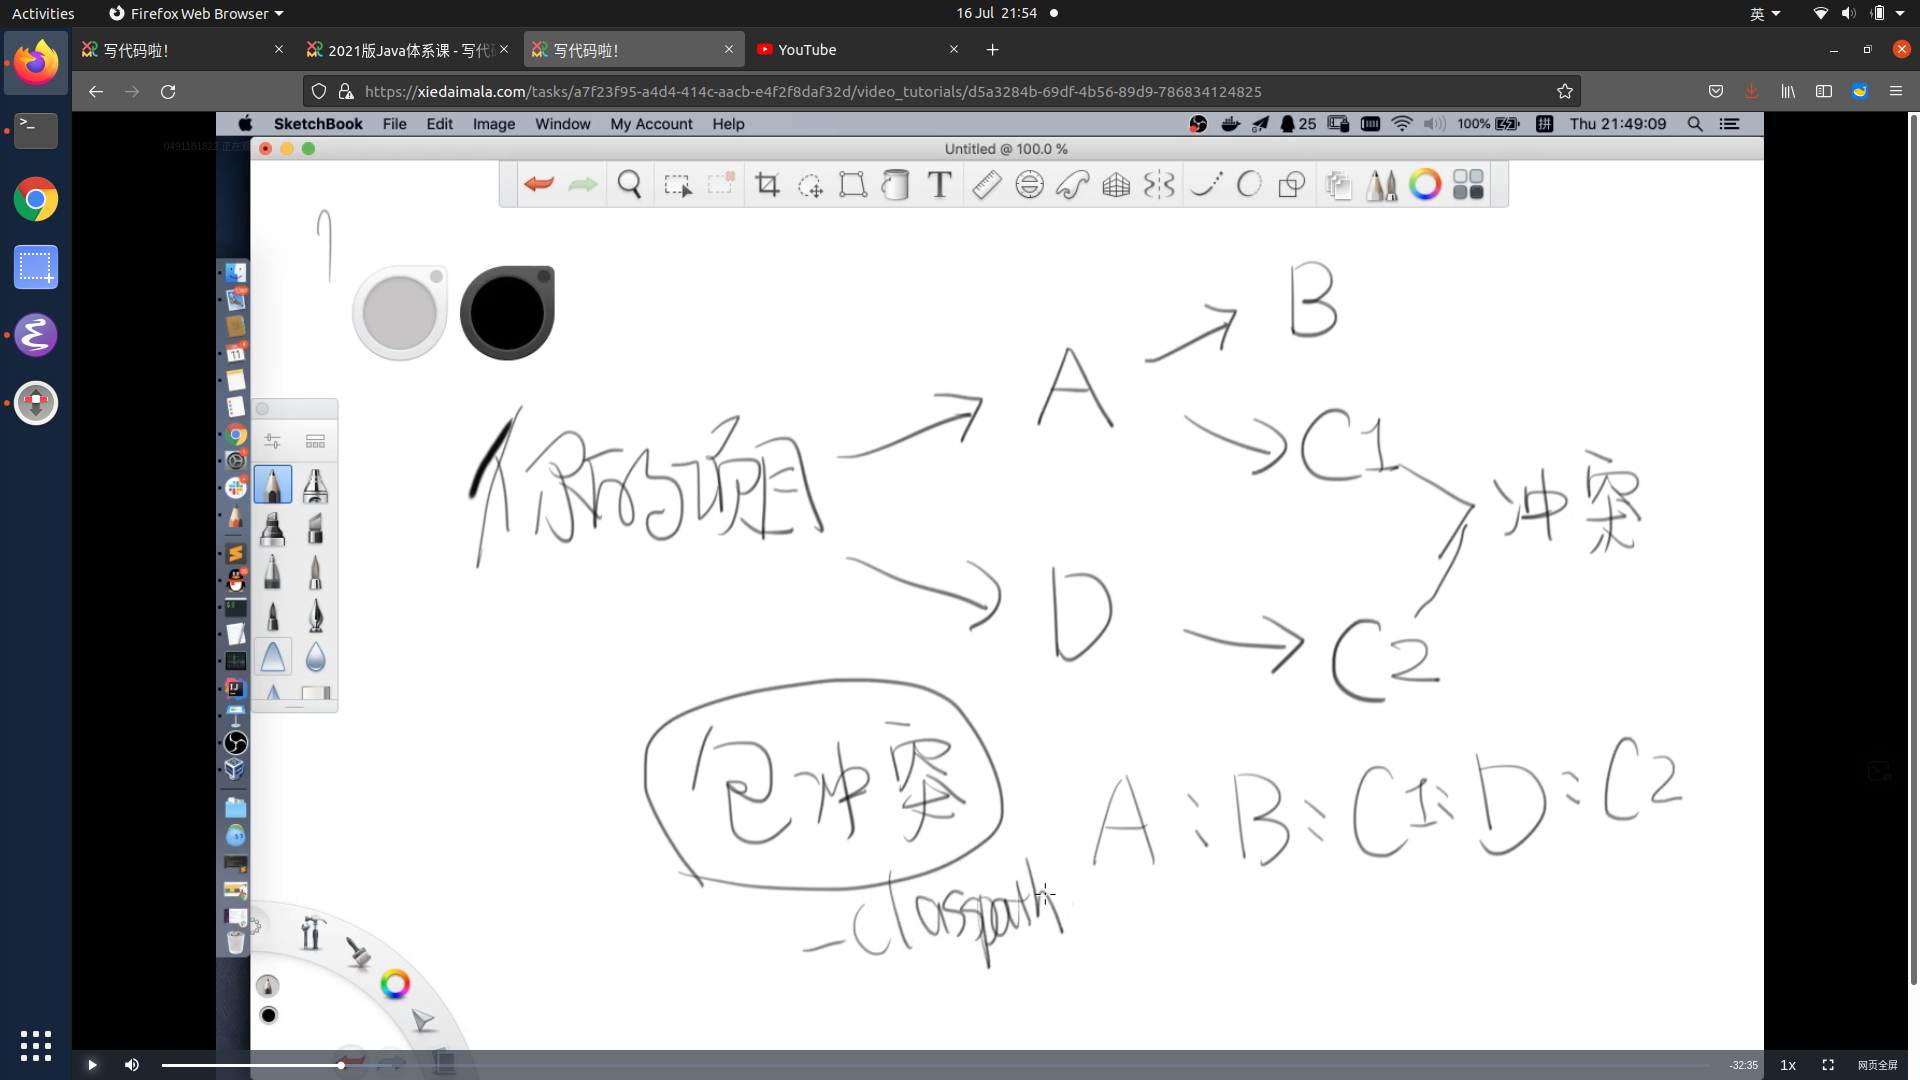 Activities
Firefox Web Browser
16 Jul 21:54
英
写代码啦!
2021版Java体系课 - 写代码
写代码啦!
YouTube
https://xiedaimala.com/tasks/a7f23f95-a4d4-414c-aacb-e4f2f8daf32d/video_tutorials/d5a3284b-69df-4b56-89d9-786834124825
SketchBook File Edit Image Window My Account Help
25
100%
拼
Thu 21:49:09
0491181822 正在观
Untitled @ 100.0 %
T
B
A
C1
你的项目
冲突
D
C2
包冲突
A : B : C1 : D : C2
-classpath
-32:35
1x
网页全屏